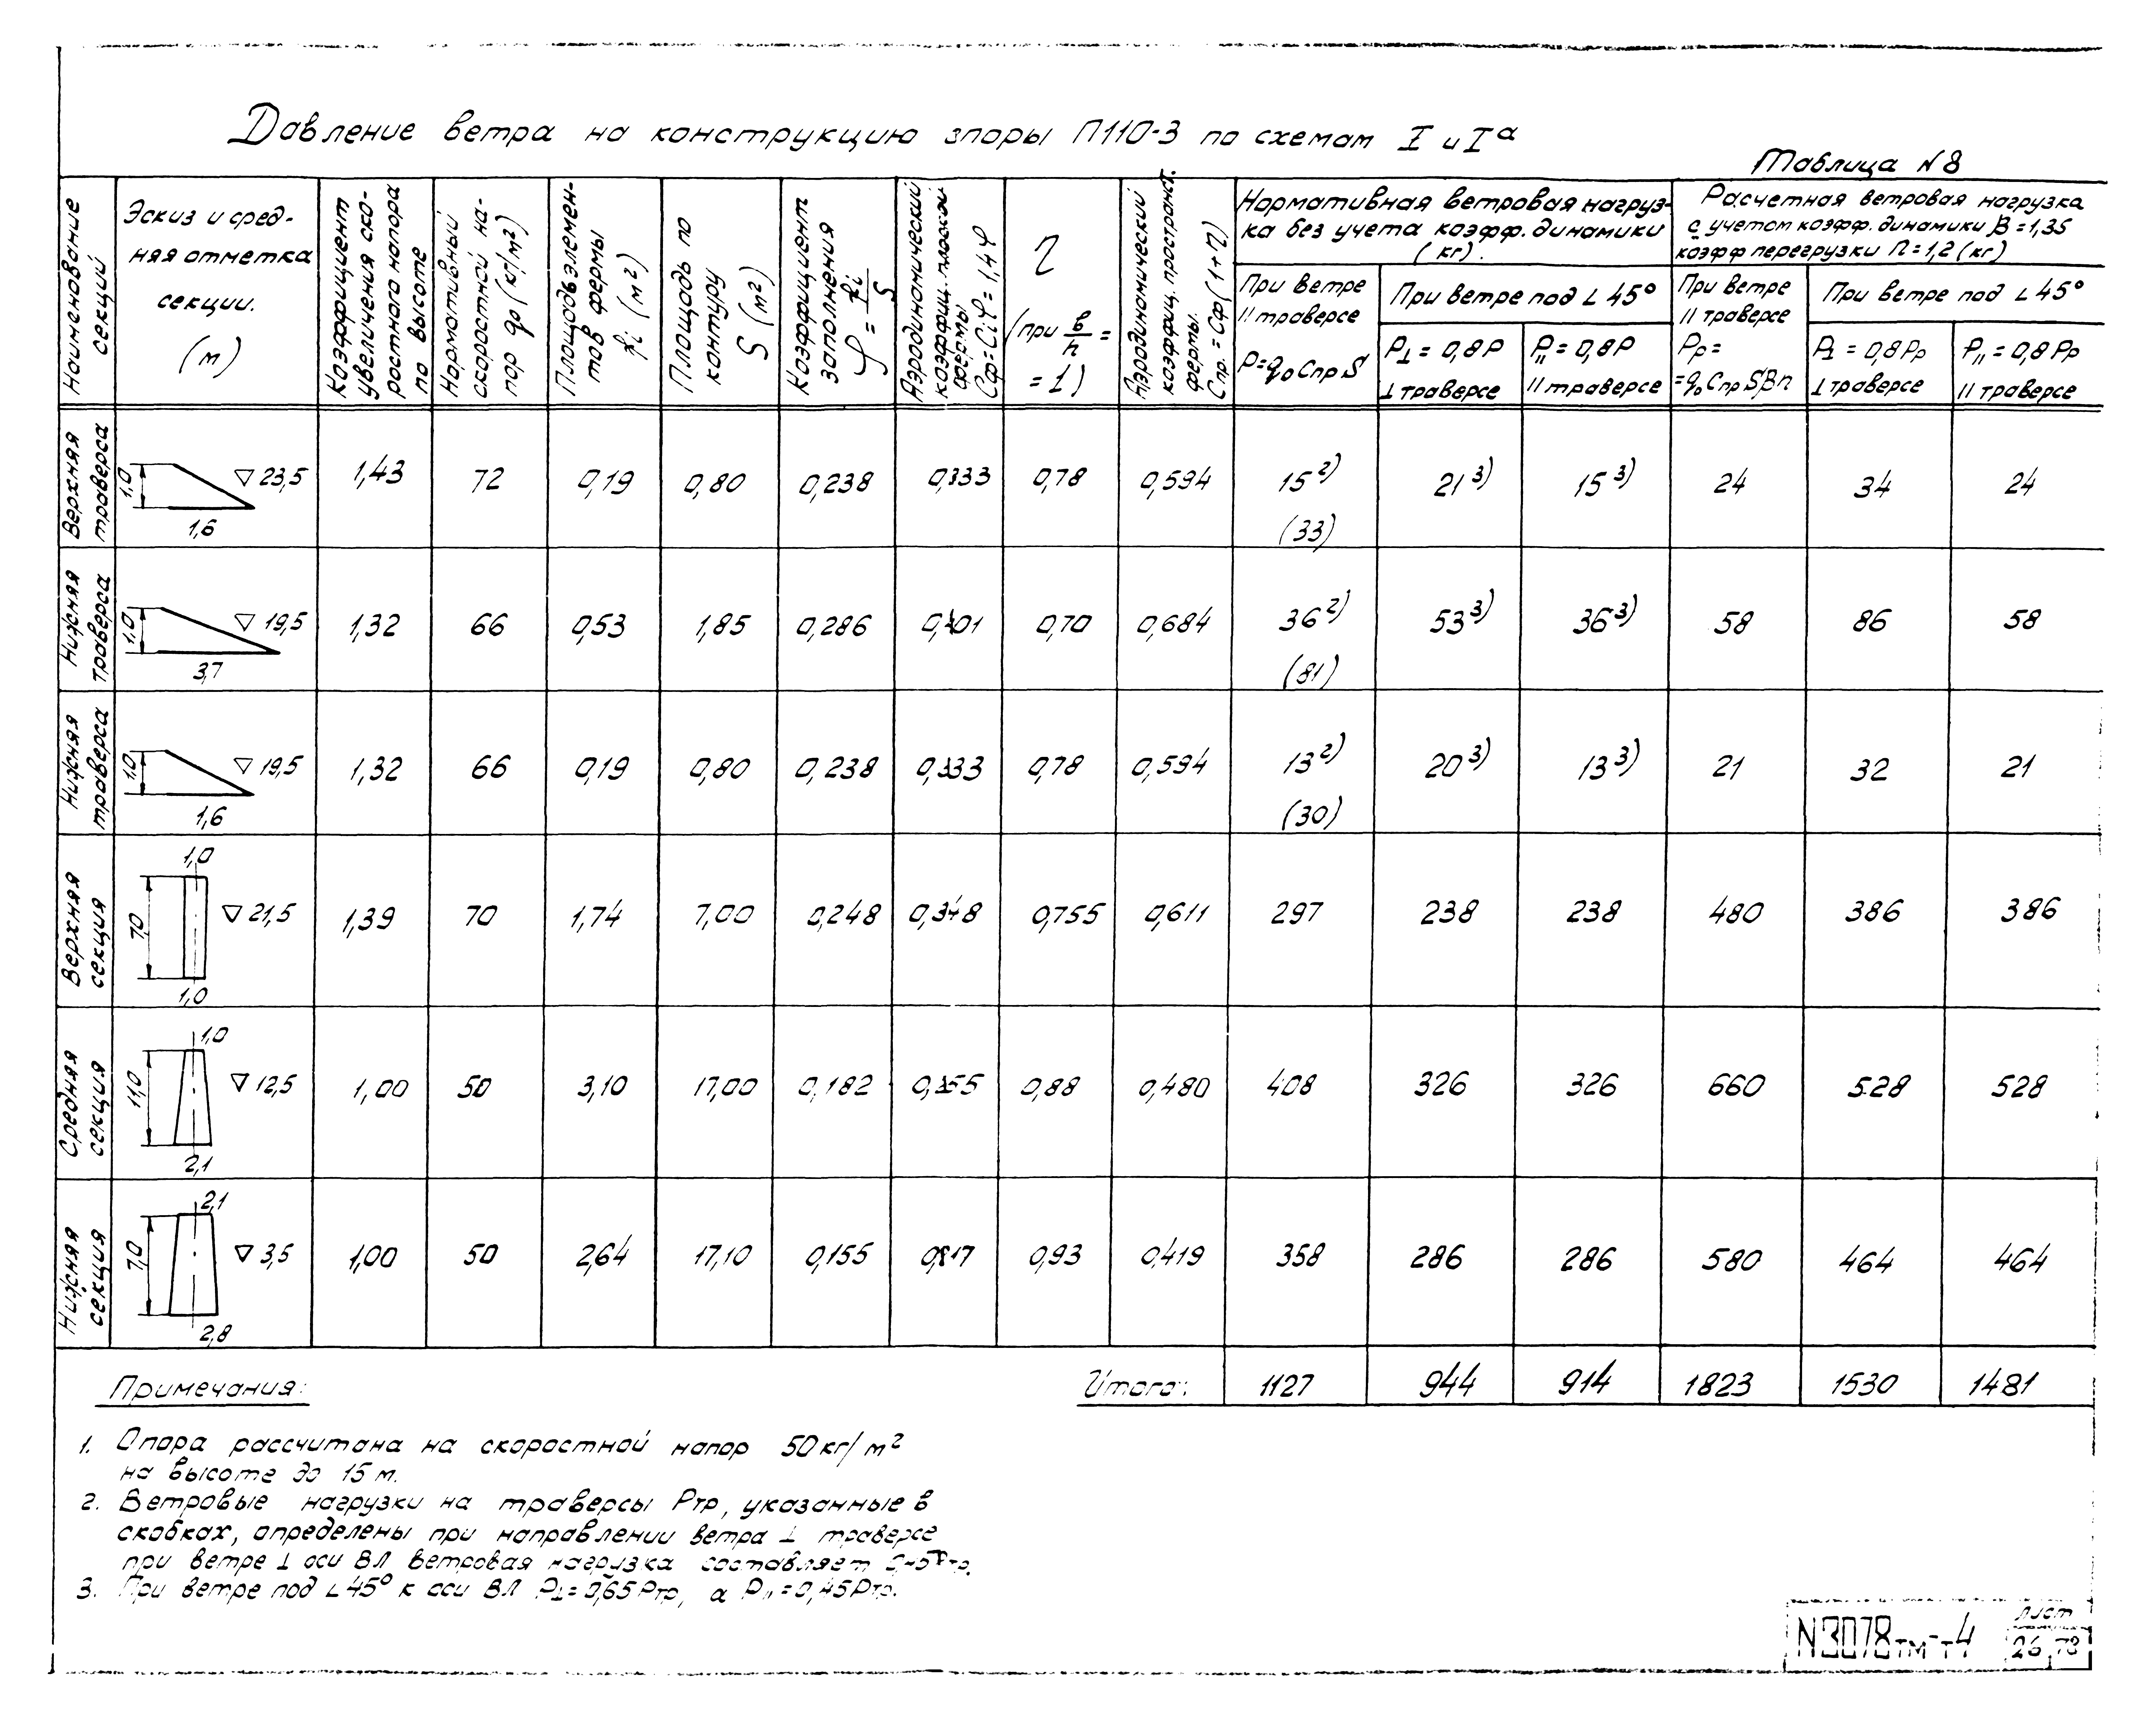 Давление ветра на конструкцию опоры П110-3 по схемам I и Iа
Таблица N8
Наименование секций
Эскиз и средняя отметка секции. (м)
Коэффициент увеличения скоростного напора по высоте
Нормативный скоростной напор q₀ (кг/м²)
Площадь элементов фермы fi (м²)
Площадь по контуру S (м²)
Коэффициент заполнения φ = fi/S
Аэродинамический коэффиц. плоской фермы Сф = Ciφ = 1,4φ
η (при в/h = = 1)
Аэродинамический коэффиц. пространст. фермы. Спр. = Сф(1+η)
Нормативная ветровая нагрузка без учета коэфф. динамики (кг).
При ветре // траверсе P=q₀CпрS
При ветре под ∠45°
P⊥ = 0,8P ⊥ траверсе
P// = 0,8P // траверсе
Расчетная ветровая нагрузка с учетом коэфф. динамики β = 1,35 коэфф перегрузки n = 1,2 (кг)
При ветре // траверсе Pp= =q₀CпрSβn
При ветре под ∠45°
P⊥ = 0,8Pp ⊥ траверсе
P// = 0,8Pp // траверсе
Верхняя траверса 1,0 1,6 ▽23,5 1,43 72 0,19 0,80 0,238 0,333 0,78 0,594 15²⁾ (33) 21³⁾ 15³⁾ 24 34 24
Нижняя траверса 1,0 3,7 ▽19,5 1,32 66 0,53 1,85 0,286 0,401 0,70 0,684 36²⁾ (81) 53³⁾ 36³⁾ 58 86 58
Нижняя траверса 1,0 1,6 ▽19,5 1,32 66 0,19 0,80 0,238 0,333 0,78 0,594 13²⁾ (30) 20³⁾ 13³⁾ 21 32 21
Верхняя секция 1,0 7,0 1,0 ▽21,5 1,39 70 1,74 7,00 0,248 0,348 0,755 0,611 297 238 238 480 386 386
Средняя секция 1,0 11,0 2,1 ▽12,5 1,00 50 3,10 17,00 0,182 0,255 0,88 0,480 408 326 326 660 528 528
Нижняя секция 2,1 7,0 2,8 ▽3,5 1,00 50 2,64 17,10 0,155 0,217 0,93 0,419 358 286 286 580 464 464
Примечания:
Итого: 1127 944 914 1823 1530 1481
1. Опора рассчитана на скоростной напор 50 кг/м²
на высоте до 15 м.
2. Ветровые нагрузки на траверсы Pтр, указанные в
скобках, определены при направлении ветра ⊥ траверсе
при ветре ⊥ оси ВЛ ветровая нагрузка составляет
3. При ветре под ∠45° к оси ВЛ P⊥=0,65Pтр, а P//=0,45Pтр.
N3078тм-т4
лист
26 78